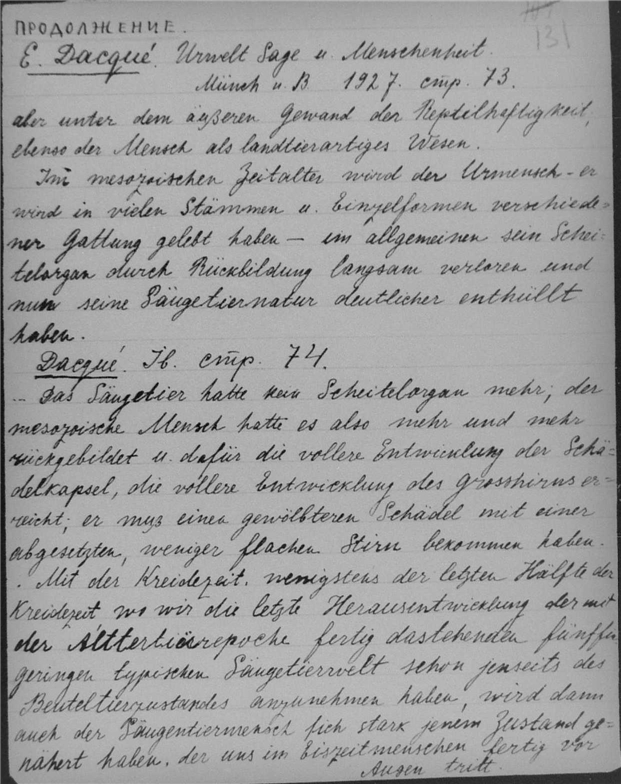 ПРОДОЛЖЕНИЕ.
131
E. Dacqué. Urwelt Sage u. Menschenheit.
Münch u. B 1927. стр. 73.
aber unter dem äußeren Gewand der Reptilhaftigkeit,
ebenso der Mensch als landtierartiges Wesen.
Im mesozoischen Zeitalter wird der Urmensch - er
wird in vielen Stämmen u. Einzelformen verschiede=
ner Gattung gelebt haben — im allgemeinen sein Schei=
telorgan durch Rückbildung langsam verloren und
nun seine Säugetiernatur deutlicher enthüllt
haben.
Dacqué. Ib. стр. 74.
... Das Säugetier hatte kein Scheitelorgan mehr; der
mesozoische Mensch hatte es also mehr und mehr
rückgebildet u. dafür die vollere Entwicklung der Schä=
delkapsel, die vollere Entwicklung des Grosshirns er=
reicht; er muß einen gewölbteren Schädel mit einer
abgesetzten, weniger flachen Stirn bekommen haben.
. Mit der Kreidezeit, wenigstens der letzten Hälfte der
Kreidezeit wo wir die letzte Herausentwicklung der mit
der Alttertiärepoche fertig dastehenden fünffin
geringen typischen Säugetierwelt schon jenseits des
Beuteltierzustandes anzunehmen haben, wird dann
auch der Säugentiermensch sich stark jenem Zustand ge=
nähert haben, der uns im Eiszeitmenschen fertig vor
Augen tritt.